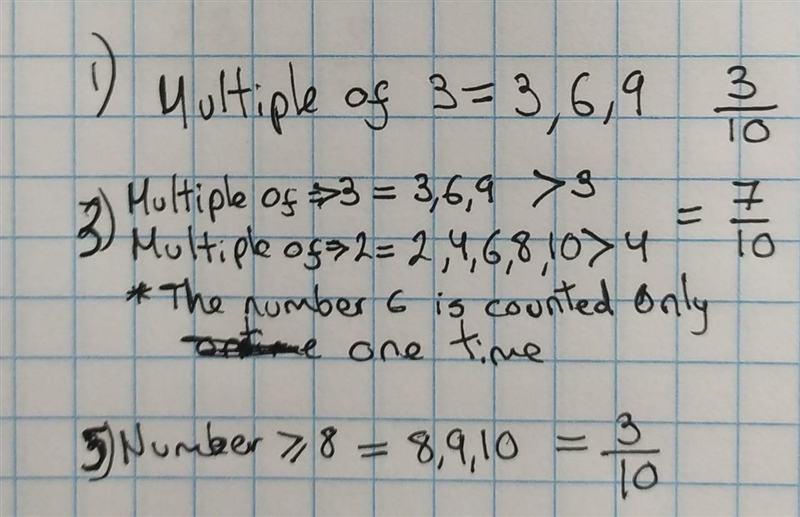 1) Multiple of 3 = 3, 6, 9 3/10
2) Multiple of ⇒ 3 = 3, 6, 9 > 3
Multiple of ⇒ 2 = 2, 4, 6, 8, 10 > 4 = 7/10
* The number 6 is counted only
one time
3) Number ⩾ 8 = 8, 9, 10 = 3/10